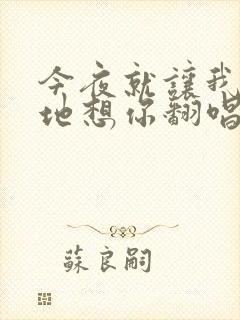 今夜就讓我
地想你翻唱
蘇良嗣